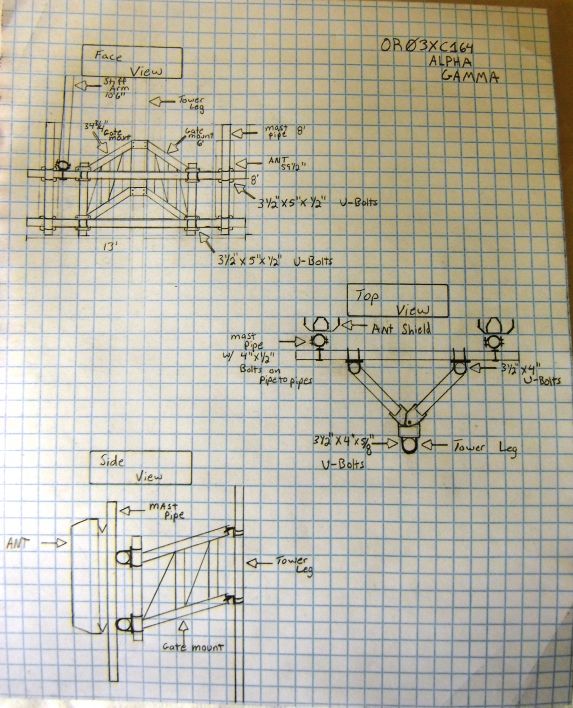 OR03XC164
ALPHA
GAMMA
Face
View
Stiff
Arm
10'6"
Tower
Leg
34 3/4"
Gate
mount
Gate
mount
6'
mast
pipe 8'
ANT
59 1/2"
8'
3 1/2" x 5" x 1/2" U-Bolts
13'
3 1/2" x 5" x 1/2" U-Bolts
Top
View
ANT Shield
mast
pipe
w/ 4" x 1/2"
Bolts on
Pipe to pipes
3 1/2" x 4"
U-Bolts
3 1/2" x 4" x 5/8"
U-Bolts
Tower Leg
Side
View
mast
Pipe
ANT
Tower
Leg
Gate mount